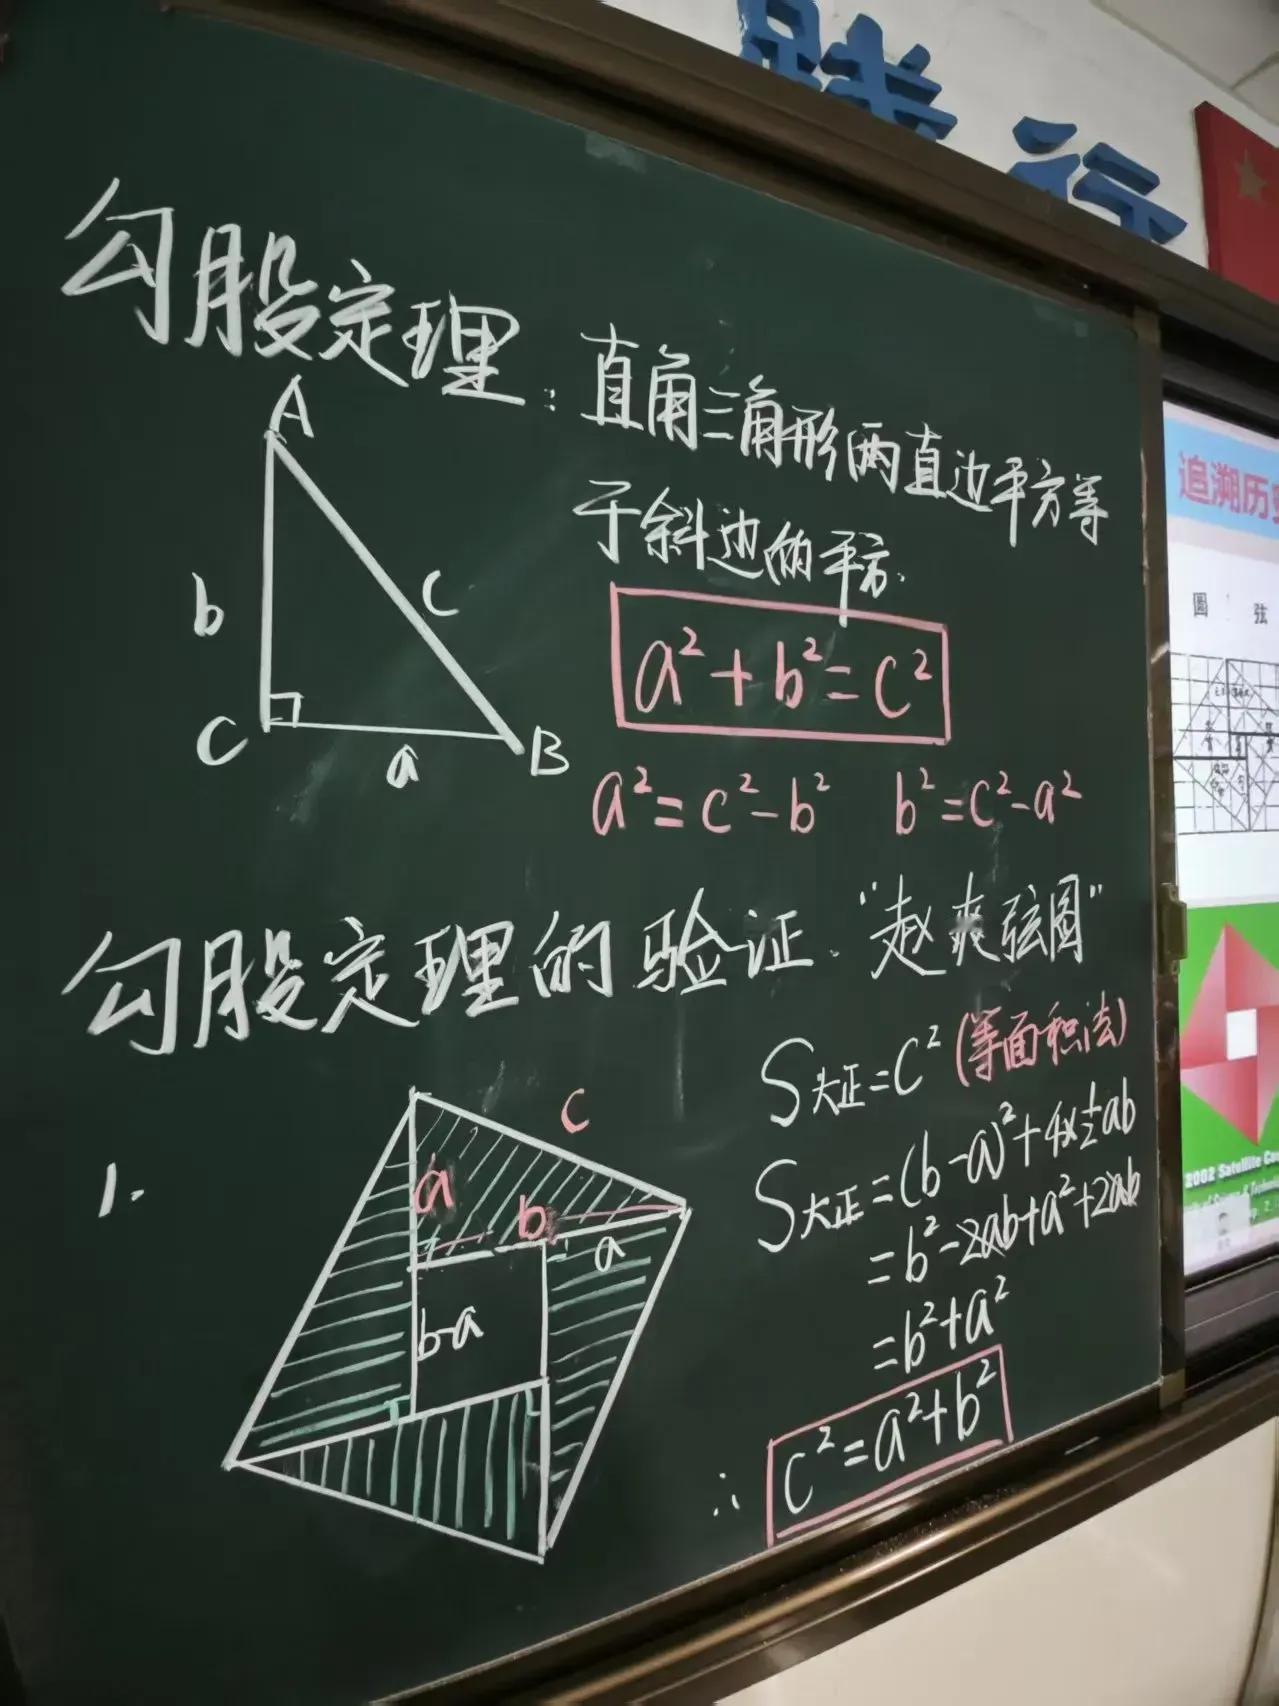 践行
勾股定理:直角三角形两直边平方等
于斜边的平方.
A
b
c
C
a
B
a²+b²=c²
a²=c²-b² b²=c²-a²
勾股定理的验证."赵爽弦图"
1.
c
a
b
a
b-a
S大正=c²(等面积法)
S大正=(b-a)²+4×½ab
=b²-2ab+a²+2ab
=b²+a²
∴ c²=a²+b²
追溯历史
圆 弦
2002 Satellite Co